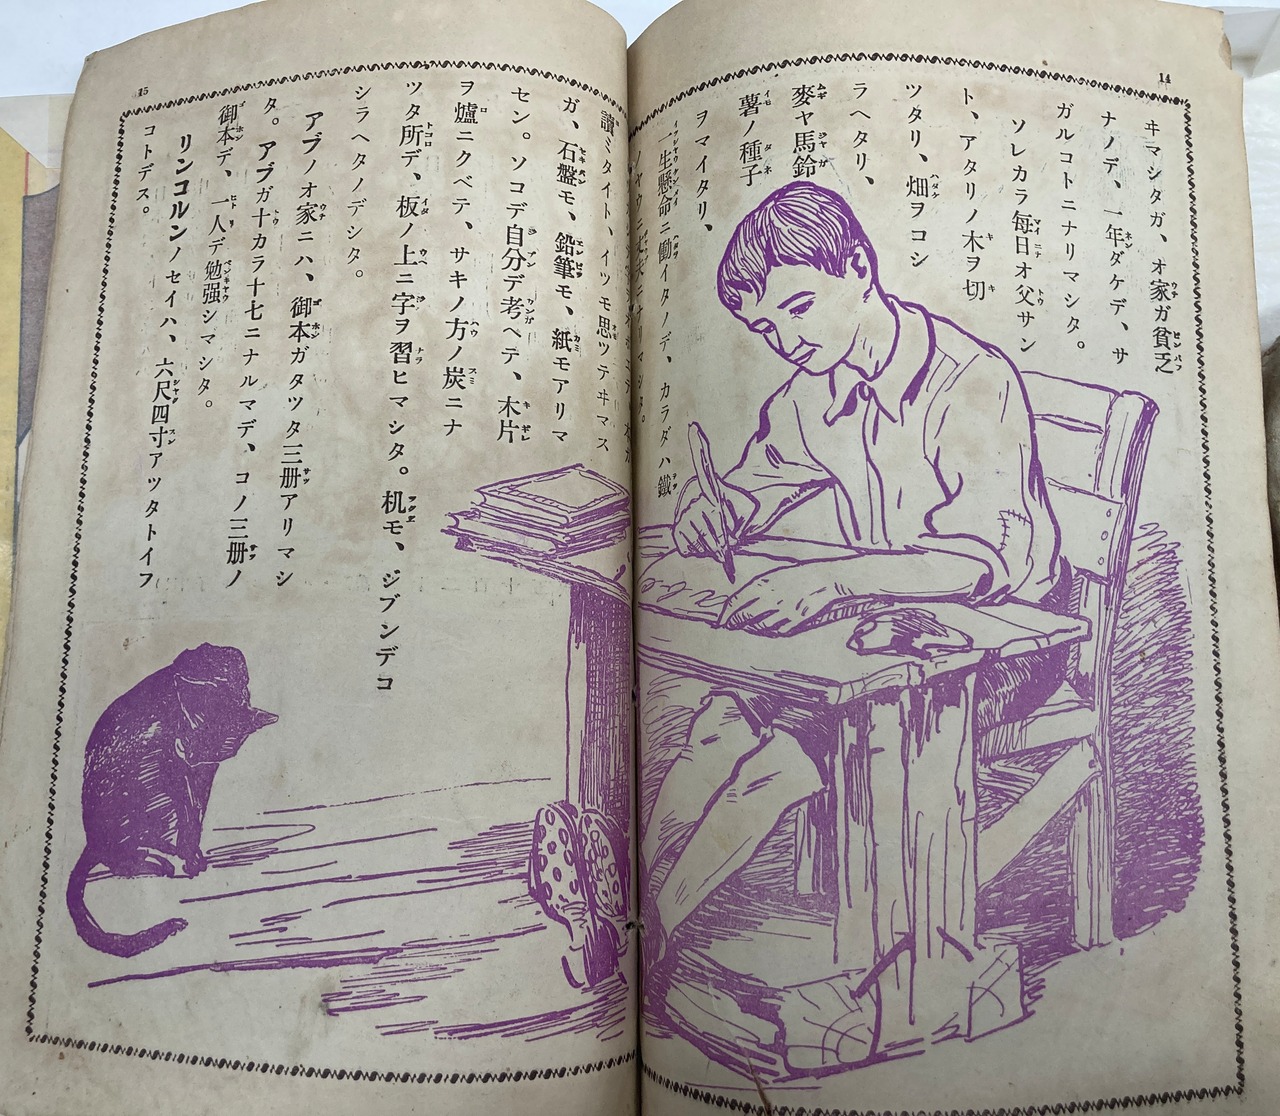 14
ヰマシタガ、オ家ガ貧乏
ナノデ、一年ダケデ、サ
ガルコトニナリマシタ。
ソレカラ毎日オ父サン
ト、アタリノ木ヲ切
ツタリ、畑ヲコシ
ラヘタリ、
麥ヤ馬鈴
薯ノ種子
ヲマイタリ、
一生懸命ニ働イタノデ、カラダハ鐵
ノヤウニ丈夫ニナリマシタ。
讀ミタイト、イツモ思ツテヰマス
ガ、石盤モ、鉛筆モ、紙モアリマ
セン。ソコデ自分デ考ヘテ、木片
ヲ爐ニクベテ、サキノ方ノ炭ニナ
ツタ所デ、板ノ上ニ字ヲ習ヒマシタ。机モ、ジブンデコ
シラヘタノデシタ。
アブノオ家ニハ、御本ガタツタ三册アリマシ
タ。アブガ十カラ十七ニナルマデ、コノ三册ノ
御本デ、一人デ勉强シマシタ。
リンコルンノセイハ、六尺四寸アツタトイフ
コトデス。
15